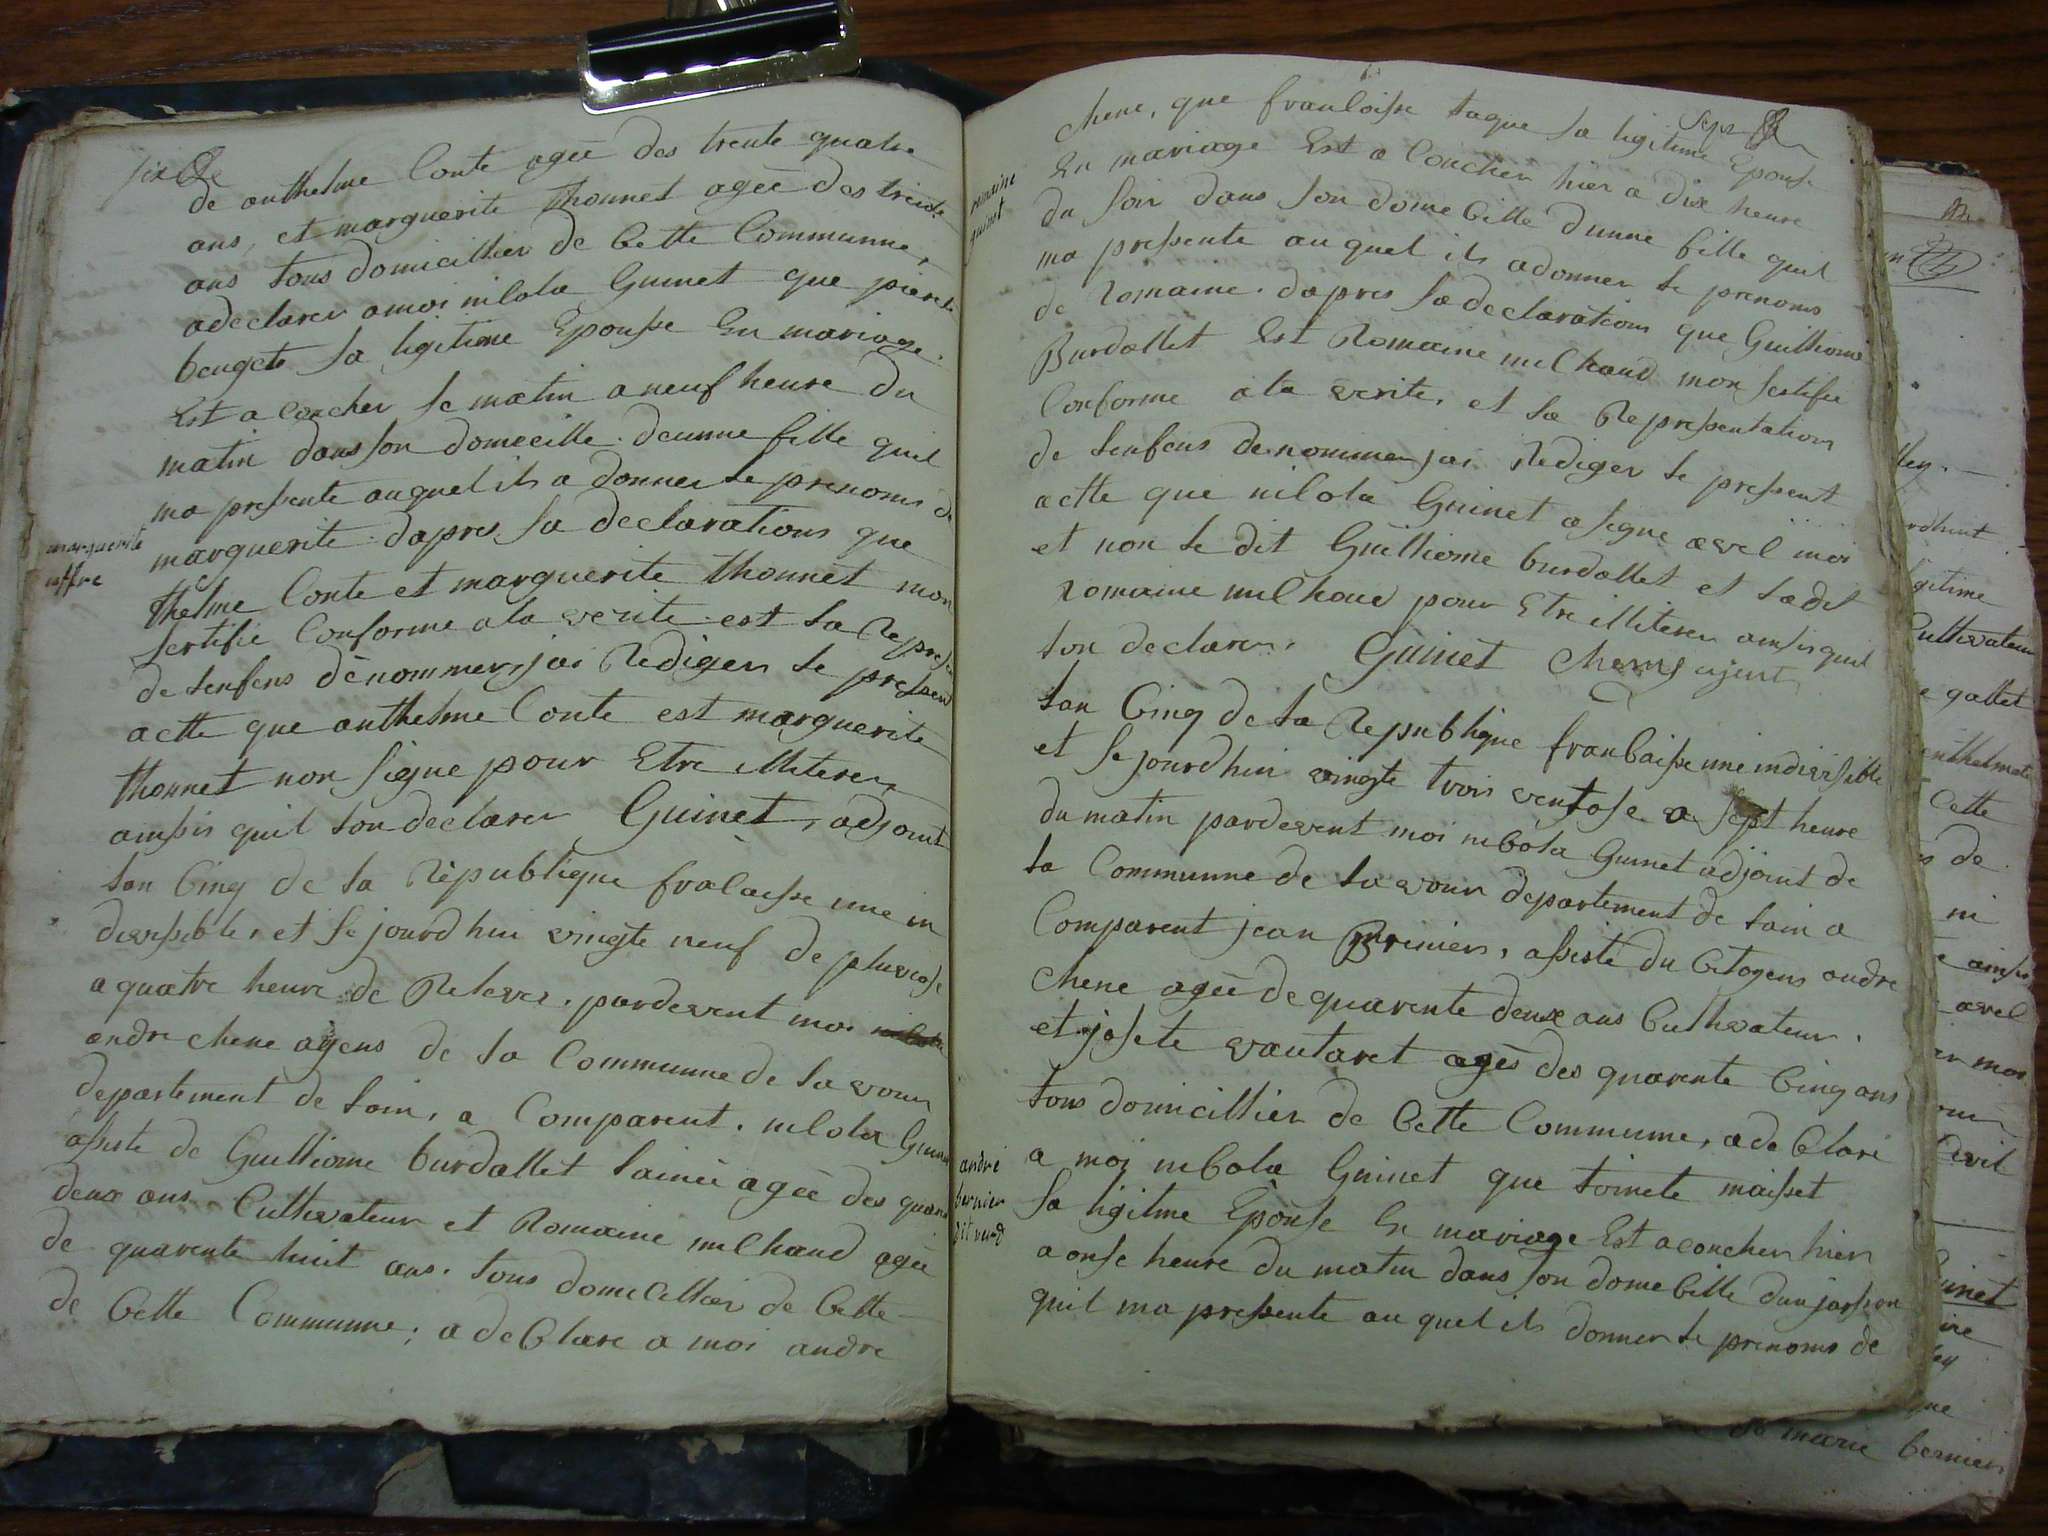 six
de anthelme Conte ageé des trente quatre
ans, et marguerite thonnet ageé des trente
ans tous domicillier de Cette Communne,
adeclarer amoi nicola Guinet que pierete
beugete sa ligitime Epousse En mariage.
Est a Coucher se matin a neuf heure du
matin dans son domecille. deunne fille quil
ma pressente auquel ils a donner le prenoms de
marguerite. dapres sa declarations que
marguerite
thelme Conte et marguerite thonnet mon
sertifié Conforme ala verite. est la Represen
de lenfens dènommer, jai Rediger le pressent
actte que anthelme Conte est marguerite
thonnet non signe pour Etre illiterer
ainssis quil lon declarer Guinet, adjoint
lan Cinq de la Republique fralaisse une in
divissible, et se jourdhui vingte neuf de pluviose
a quatre heure de Releves. pardevent moi
andre chene agens de la Communne de lavour
departement de lain, a Comparent. nicola Guinet
assiste de Guilliome burdallet lainée ageé des quarente
deux ans Cultivateur et Romaine milhaud ageé
de quarente huit ans. tous domicillier de Cette
de Cette Communne; a declare a moi andre
sept
chene, que francoisse taque sa ligitime Epousse
En mariage Est a Coucher hier a dix heure
romaine
guinet
du soir dans son domecille dunne fille quil
ma pressente auquel ils adonner le prenoms
de Romaine. dapres sa declarations que Guilliome
Burdallet Est Romaine milhaud mon sertifie
Conforme ala verite, et la Repressentation
de lenfens denommer jai Rediger le pressent
actte que nicola Guinet a signe avec moi
et non le dit Guilliome burdallet et ladit
Romaine milhaud pour Etre illiterer ainssis quil
lon declarer. Guinet Chene ajent
lan Cinq de la Republique francaisse une indivissible
et se jourdhui vingte trois ventose a sept heure
du matin pardevent moi nicola Guinet adjoint de
la Communne de lavour departement de lain a
Comparent jean Berinier, assiste du Citoyens andre
chene ageé de quarente deux ans Cultivateur.
et josete vautaret agés des quarente Cinq ans
tous domicillier de Cette Communne, a declare
a moi nicola Guinet que toinete maisset
andré
bernier
dit verd
sa ligitme Epouse En mariage Est acoucher hier
a onse heure du matin dans son domecille dun jarsson
quil ma pressente au quel ils donner le prenoms de